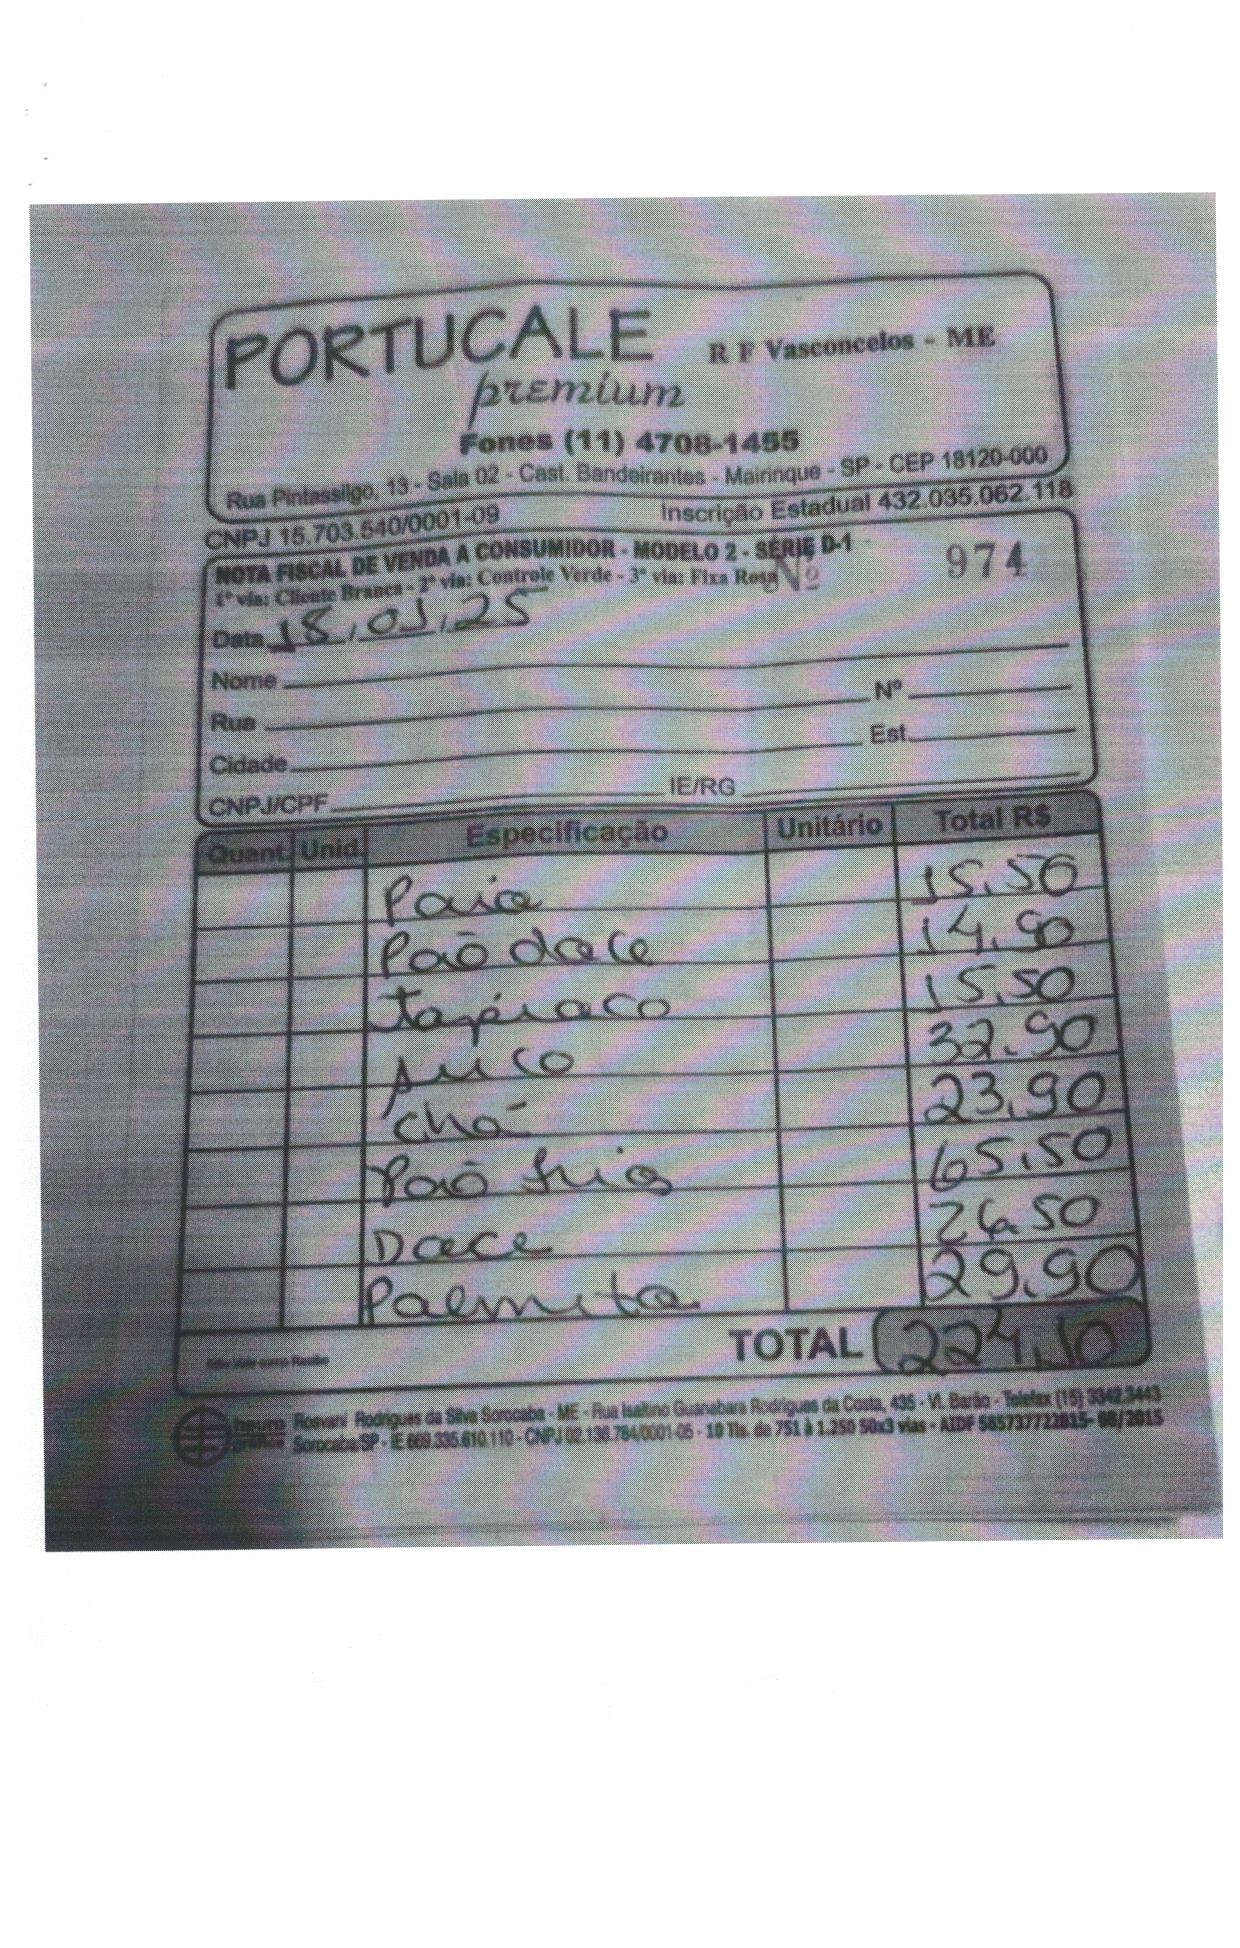 PORTUCALE R F Vasconcelos - ME
premium
Fones (11) 4708-1455
Rua Pintassilgo, 13 - Sala 02 - Cast. Bandeirantes - Mairinque - SP - CEP 18120-000
CNPJ 15.703.540/0001-09 Inscrição Estadual 432.035.062.118
NOTA FISCAL DE VENDA A CONSUMIDOR - MODELO 2 - SÉRIE D-1
1ª via: Cliente Branca - 2ª via: Controle Verde - 3ª via: Fixa Rosa Nº 974
Data 18,01,25
Nome
Rua Nº
Cidade Est.
CNPJ/CPF IE/RG
Quant. Unid. Especificação Unitário Total R$
15,50
Paõ doce 14,90
15,50
Suco 32,90
chá 23,90
Paõ frio 65,50
Doce 26,50
Palmito 29,90
TOTAL 224,10
Não Vale como Recibo
Rosvani Rodrigues da Silva Sorocaba - ME - Rua Isaltino Guanabara Rodrigues da Costa, 435 - Vl. Barão - Telefax (15) 3342.3443
gráfica Sorocaba/SP - IE 669.335.610.110 - CNPJ 02.136.784/0001-05 - 10 Tls. de 751 à 1.250 50x3 vias - AIDF 585737722815- 08/2015